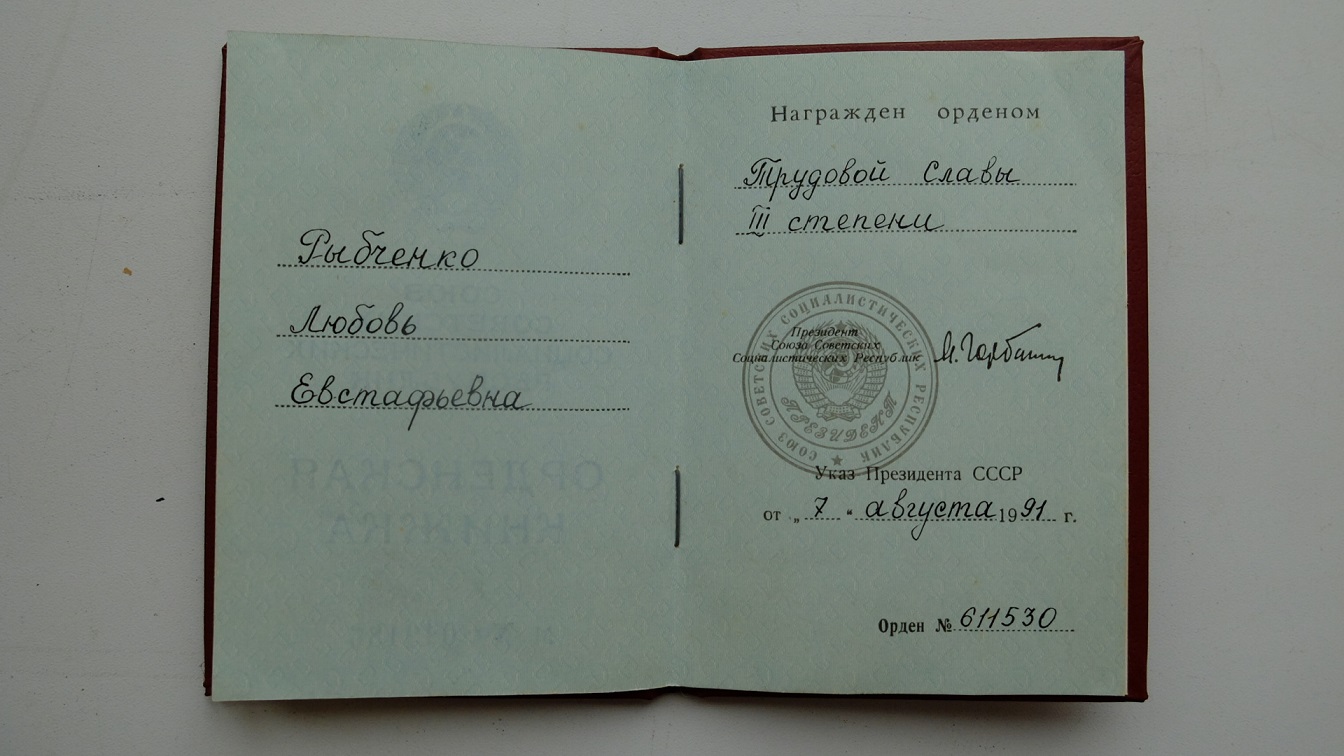 Рыбченко
Любовь
Евстафьевна
Награжден орденом
Трудовой Славы
III степени
СОЮЗ СОВЕТСКИХ СОЦИАЛИСТИЧЕСКИХ РЕСПУБЛИК
ПРЕЗИДЕНТ
Президент
Союза Советских
Социалистических Республик
М. Горбачев
Указ Президента СССР
от „ 7 “ августа 1991 г.
Орден № 611530
ОРДЕНСКАЯ
КНИЖКА